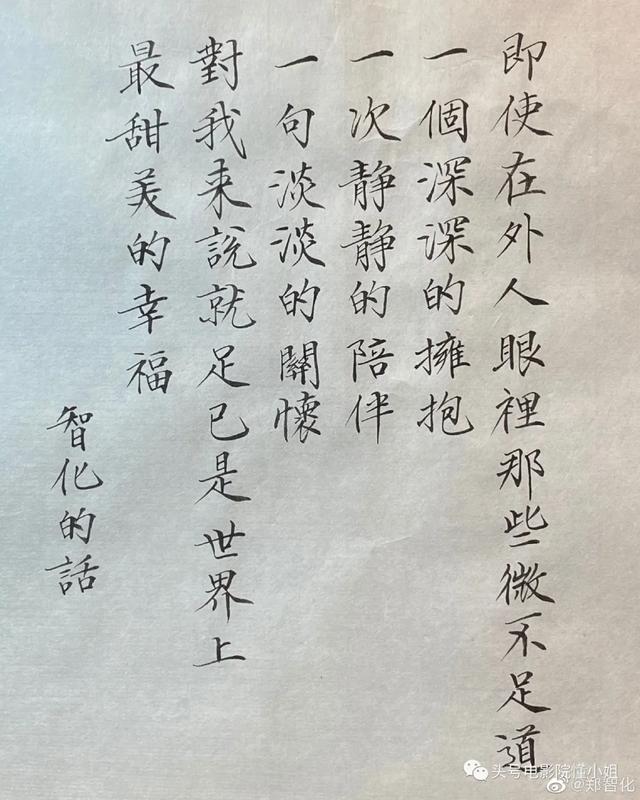 即使在外人眼裡那些微不足道
一個深深的擁抱
一次静静的陪伴
一句淡淡的關懷
對我来說就足已是世界上
最甜美的幸福
智化的話
头号电影院懂小姐
@郑智化